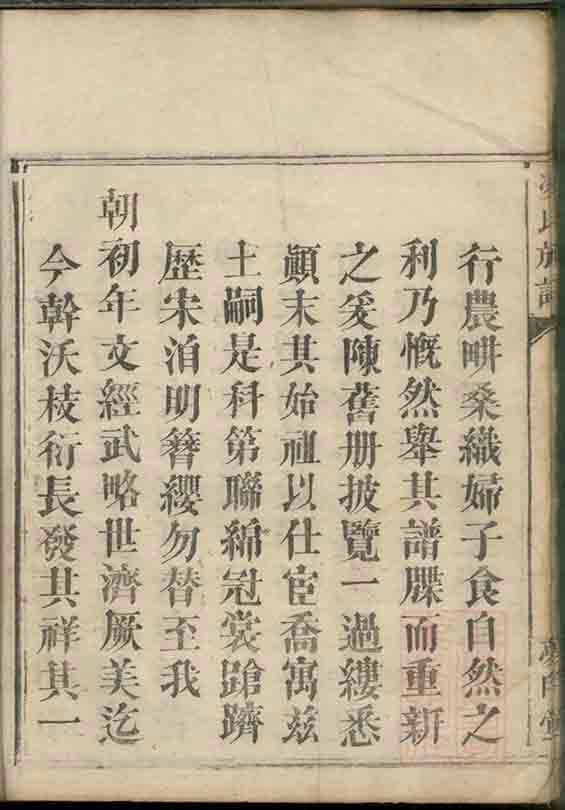 行農畊桑織婦子食自然之
利乃慨然舉其譜牒而重新
之爰陳舊册披覽一過縷悉
顚末其始祖以仕宦喬寓兹
土嗣是科第聯綿冠裳蹌躋
歷宋洎明簪纓勿替至我
朝初年文經武略世濟厥美迄
今幹沃枝衍長發其祥其一
氏族譜